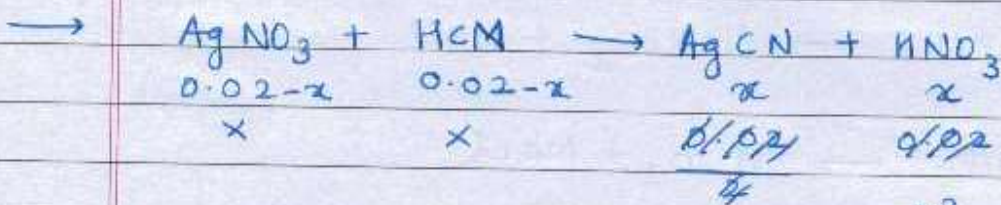 → AgNO₃ + HCN → AgCN + HNO₃
0.02-x 0.02-x x x
x x 0.02 0.02
4